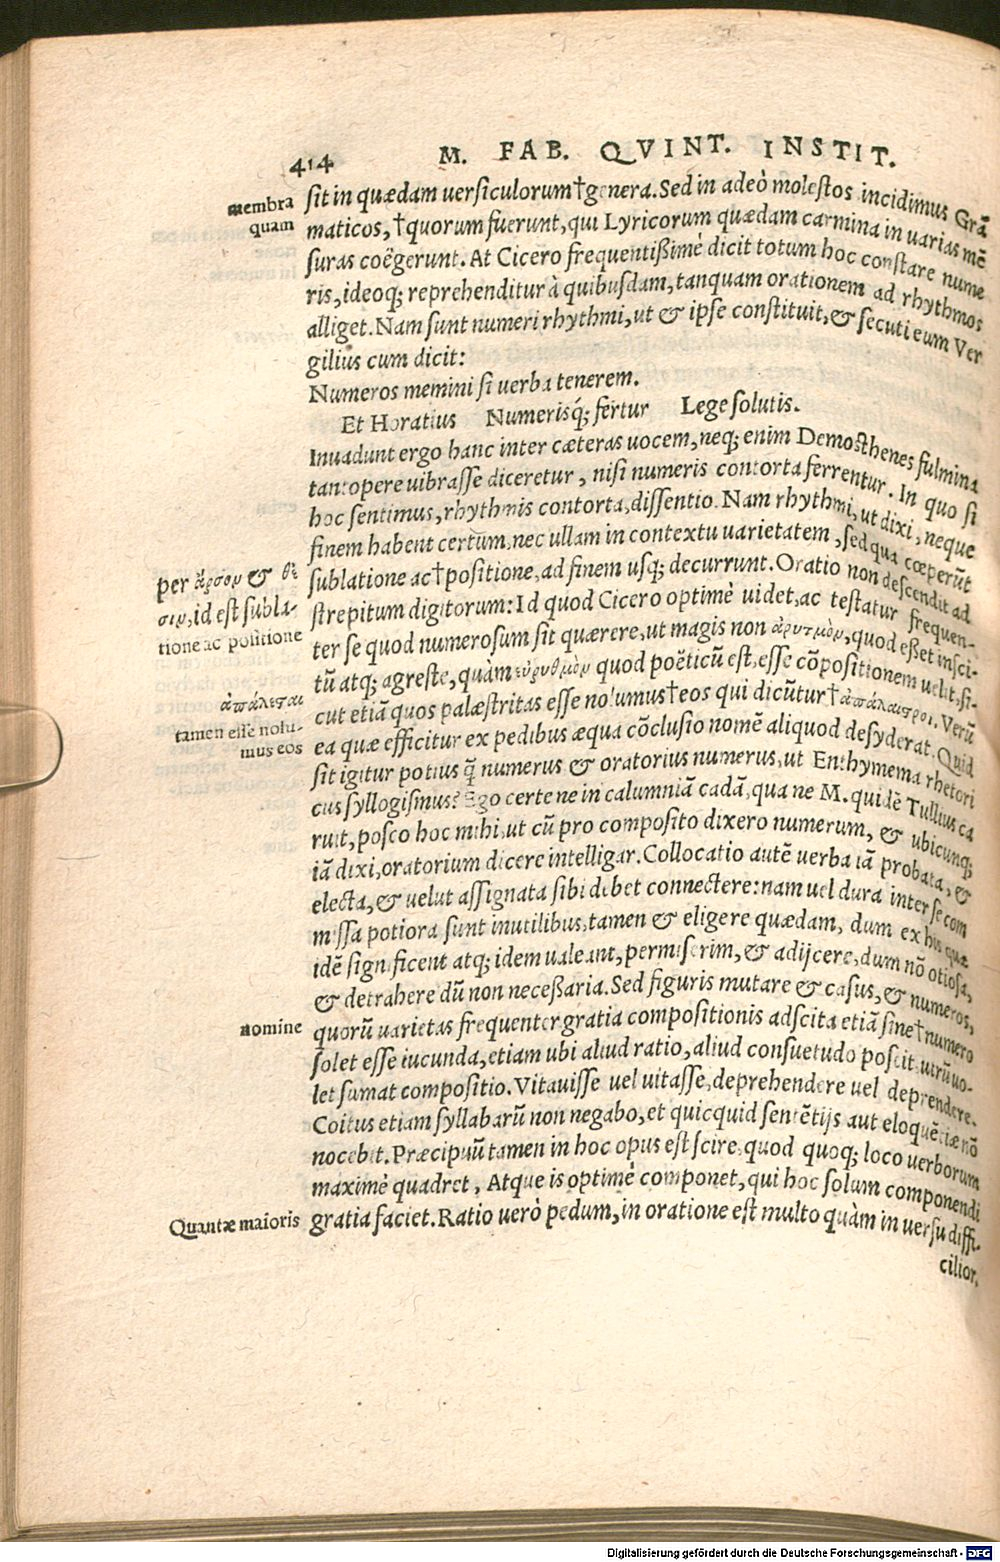 414
M. FAB. QVINT. INSTIT.
membra
quam
sit in quædam uersiculorum†genera. Sed in adeò molestos incidimus Grā
maticos, †quorum fuerunt, qui Lyricorum quædam carmina in uarias mē
suras coëgerunt. At Cicero frequentißimè dicit totum hoc constare nume
ris, ideoq; reprehenditur à quibusdam, tanquam orationem ad rhythmos
alliget. Nam sunt numeri rhythmi, ut & ipse constituit, & secuti eum Ver
gilius cum dicit:
Numeros memini si uerba tenerem.
Et Horatius Numerisq́; fertur Lege solutis.
Inuadunt ergo hanc inter cæteras uocem, neq; enim Demosthenes fulmina
tantopere uibrasse diceretur, nisi numeris contorta ferrentur. In quo si
hoc sentimus, rhythmis contorta, dissentio. Nam rhythmi, ut dixi, neque
finem habent certum, nec ullam in contextu uarietatem, sed qua cœperūt
per ἄρσον & θέ
σιν, id est subla-
tione ac positione
sublatione ac†positione, ad finem usq; decurrunt. Oratio non descendit ad
strepitum digitorum: Id quod Cicero optimè uidet, ac testatur frequen-
ter se quod numerosum sit quærere, ut magis non ἀρυτμὸν, quod eßet insci-
tū atq; agreste, quàm εὐρυθμὸν quod poëticū est, esse cōpositionem uelit, si-
tamen esse nolu-
mus eos
cut etiā quos palæstritas esse nolumus†eos qui dicūtur† ἀπάλαιστροι. Verū
ea quæ efficitur ex pedibus æqua cōclusio nomē aliquod desyderat. Quid
sit igitur potius q̄ numerus & oratorius numerus, ut Enthymema rhetori
cus syllogismus? Ego certe ne in calumniā cadā, qua ne M. quidē Tullius ca
ruit, posco hoc mihi, ut cū pro composito dixero numerum, & ubicunq;
iā dixi, oratorium dicere intelligar. Collocatio autē uerba iā probata, &
electa, & uelut assignata sibi debet connectere: nam uel dura inter se com
missa potiora sunt inutilibus, tamen & eligere quædam, dum ex his quæ
idē significent atq; idem ualeant, permiserim, & adijcere, dum nō otiosa,
& detrahere dū non neceßaria. Sed figuris mutare & casus, & numeros,
nomine
quorū uarietas frequenter gratia compositionis adscita etiā sine†numero
solet esse iucunda, etiam ubi aliud ratio, aliud consuetudo poscit, utrū uo-
let sumat compositio. Vitauisse uel uitasse, deprehendere uel deprendere.
Coitus etiam syllabarū non negabo, et quicquid sentētijs aut eloquētiæ nō
nocebit. Præcipuū tamen in hoc opus est scire, quod quoq; loco uerborum
maximè quadret, Atque is optimè componet, qui hoc solum componendi
Quantæ maioris
gratia faciet. Ratio uerò pedum, in oratione est multo quàm in uersu diffi-
cilior,
Digitalisierung gefördert durch die Deutsche Forschungsgemeinschaft - DFG